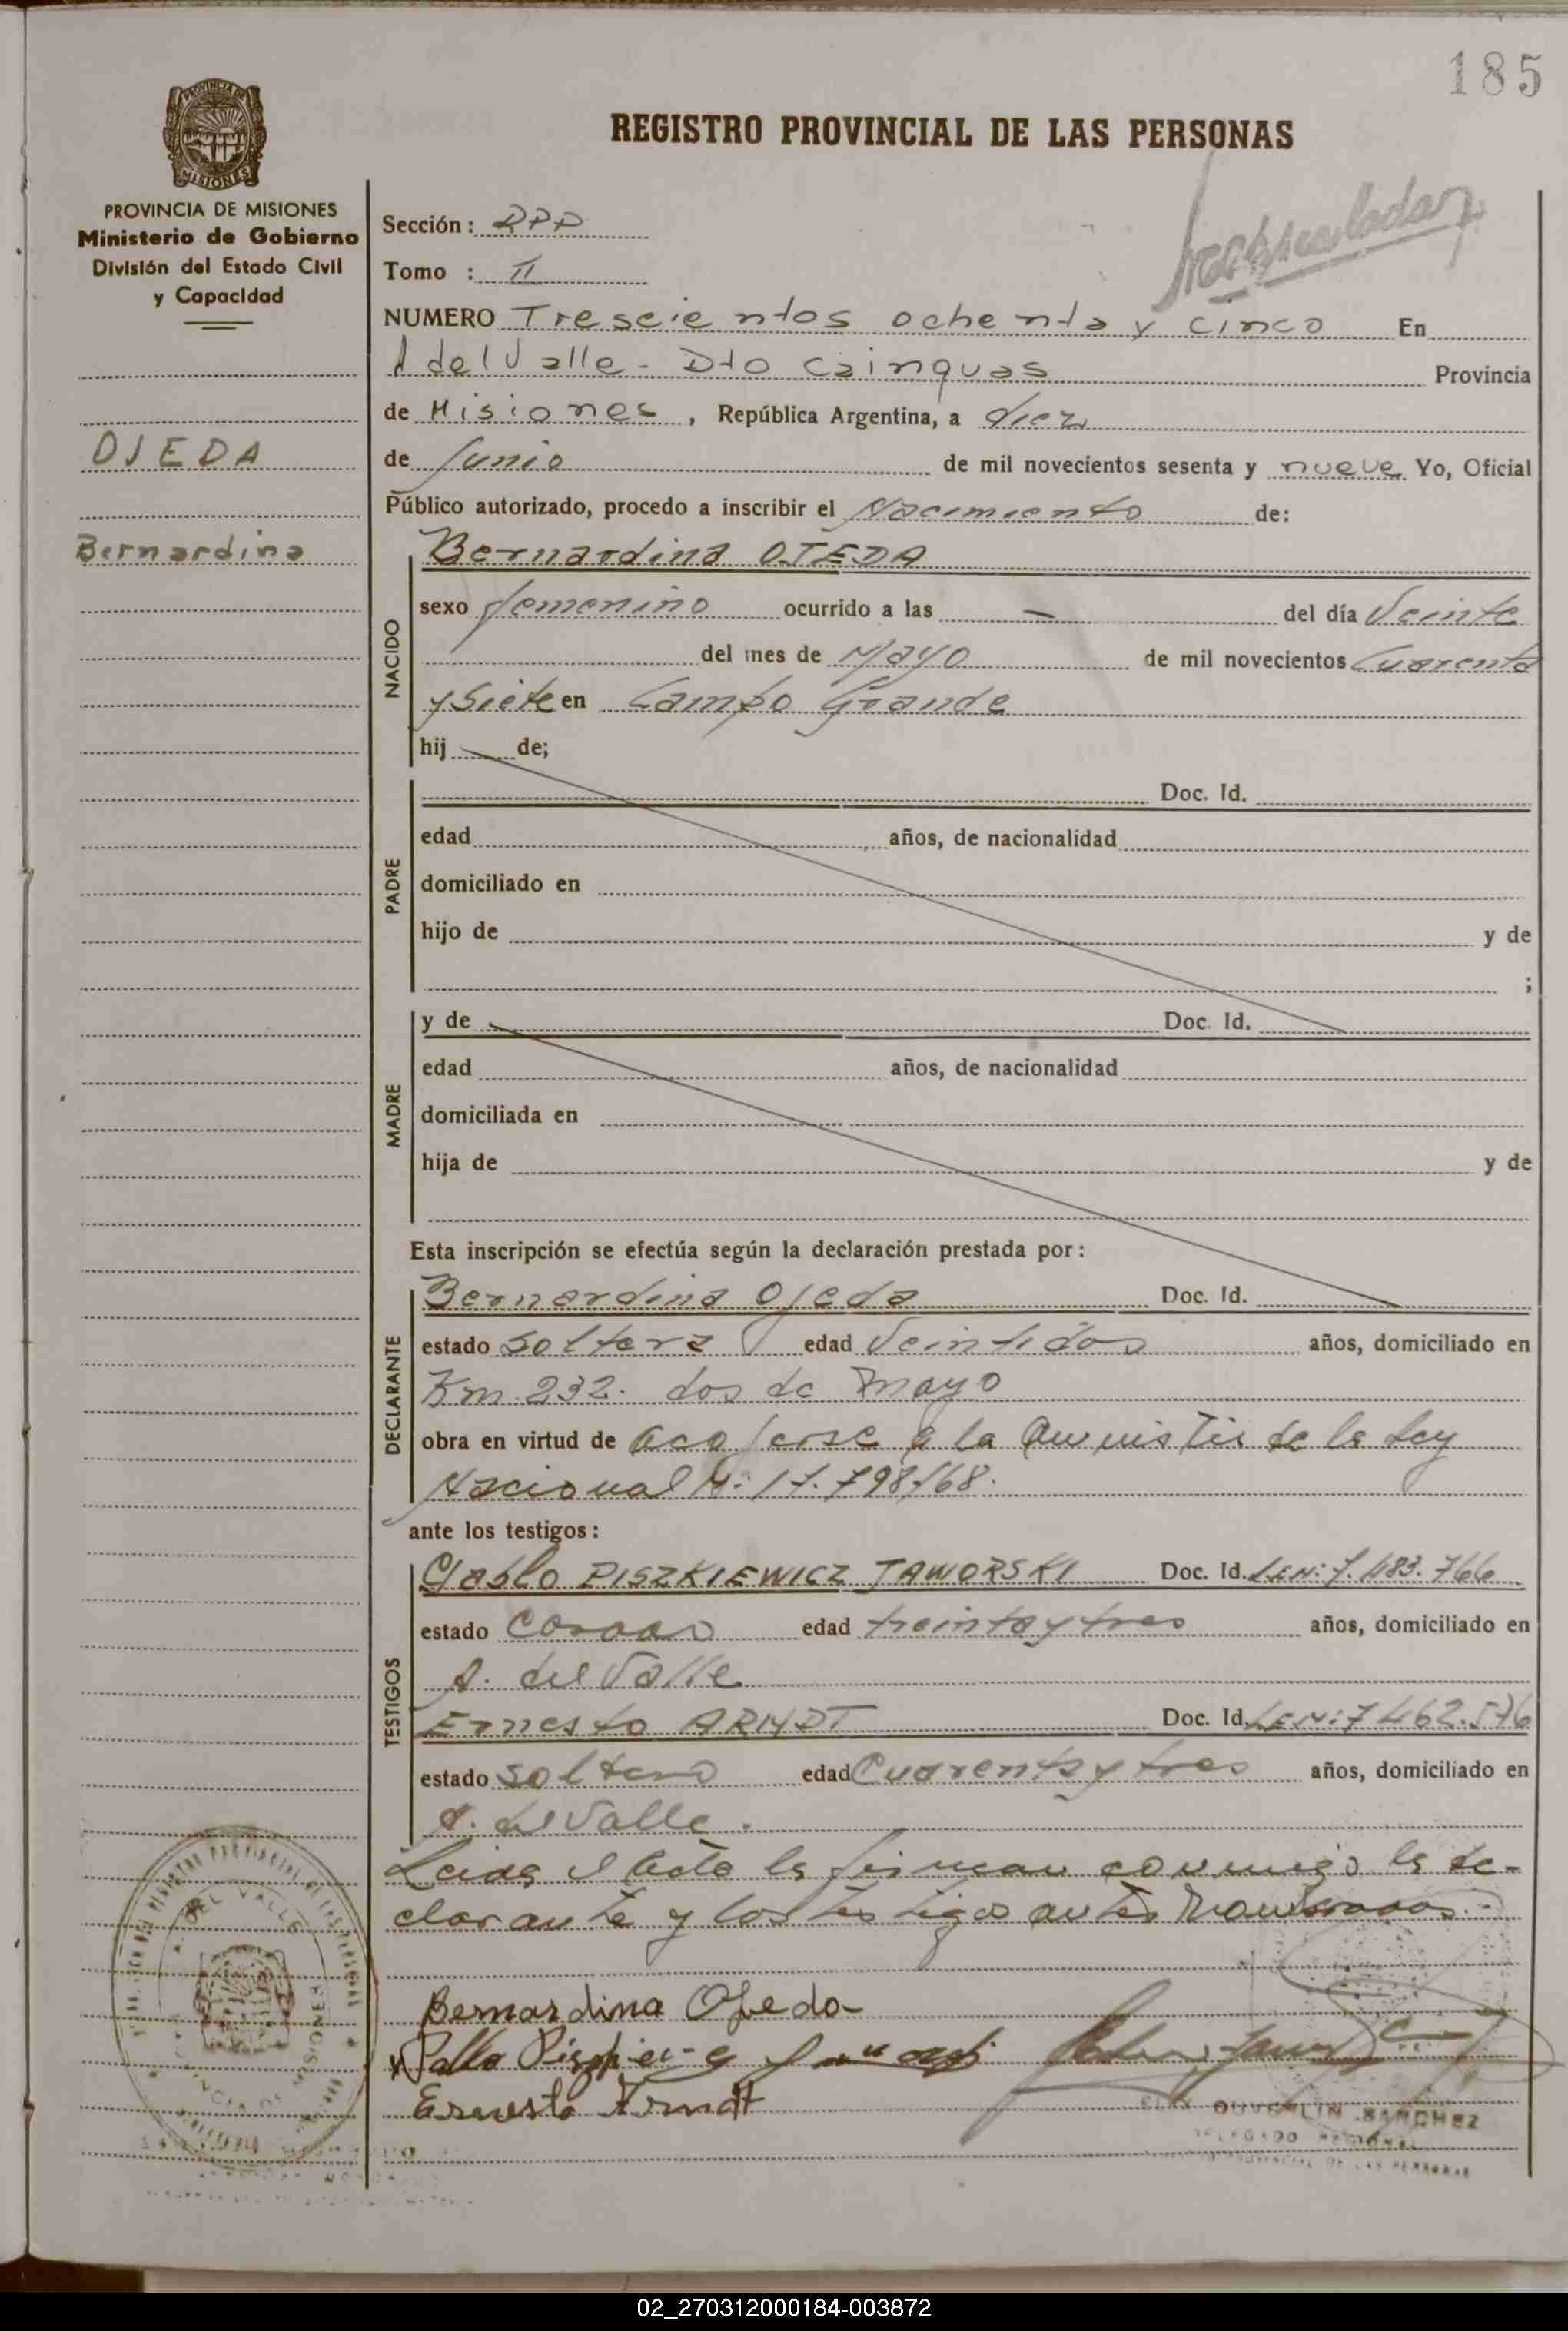 185
REGISTRO PROVINCIAL DE LAS PERSONAS
PROVINCIA DE
MISIONES
PROVINCIA DE MISIONES
Ministerio de Gobierno
División del Estado Civil
y Capacidad
OJEDA
Bernardina
Sección: RPP
Tomo : II
NUMERO Trescientos ochenta y cinco En
A del Valle - Dto Cainguas Provincia
de Misiones, República Argentina, a diez
de Junio de mil novecientos sesenta y nueve Yo, Oficial
Público autorizado, procedo a inscribir el Nacimiento de:
NACIDO
Bernardina OJEDA
sexo femenino ocurrido a las — del día Veinte
del mes de Mayo de mil novecientos Cuarenta
y Siete en Campo Grande
hij de;
PADRE
Doc. Id.
edad años, de nacionalidad
domiciliado en
hijo de y de
;
MADRE
y de Doc. Id.
edad años, de nacionalidad
domiciliada en
hija de y de
Esta inscripción se efectúa según la declaración prestada por:
DECLARANTE
Bernardina Ojeda Doc. Id.
estado soltera edad Veintidos años, domiciliado en
Km. 232. dos de Mayo
obra en virtud de acojerse a la Amnistia de la Ley
Nacional N: 17.798/68.
ante los testigos:
TESTIGOS
Pablo PISZKIEWICZ JAWORSKI Doc. Id. L.E.N: 7.483.766
estado Casado edad treinta y tres años, domiciliado en
A. del Valle
Ernesto ARNDT Doc. Id. L.E.N: 7462.576
estado soltero edad Cuarenta y tres años, domiciliado en
A. del Valle.
Leida el Acta la firman conmigo la de-
clarante y los testigos antes nombrados.
Bernardina Ojeda
Pablo
Ernesto Arndt
DEL VALLE
SANCHEZ
DELEGADO REGIONAL
PROVINCIAL DE LAS PERSONAS
02_270312000184-003872